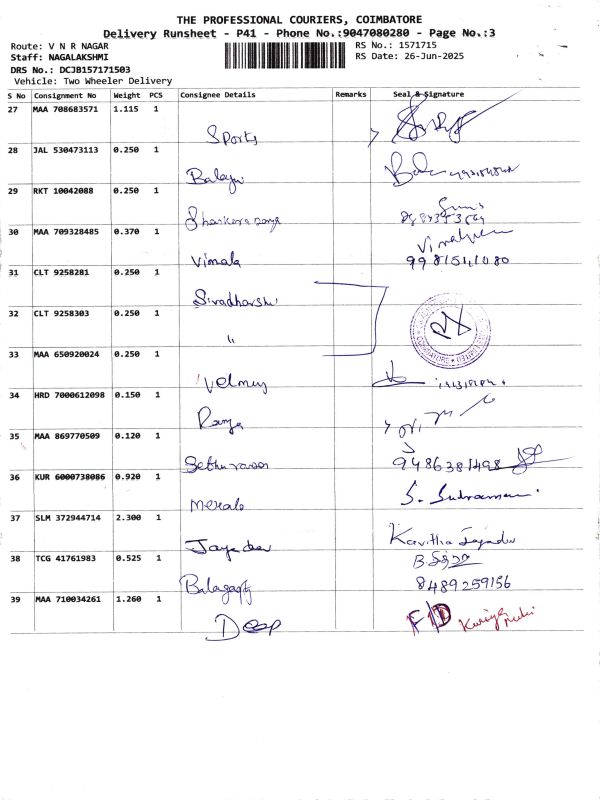 THE PROFESSIONAL COURIERS, COIMBATORE
Delivery Runsheet - P41 - Phone No.:9047080280 - Page No.:3
Route: V N R NAGAR
RS No.: 1571715
Staff: NAGALAKSHMI
RS Date: 26-Jun-2025
DRS No.: DCJB157171503
Vehicle: Two Wheeler Delivery
S No Consignment No Weight PCS Consignee Details Remarks Seal & Signature
27 MAA 708683571 1.115 1
Sports
28 JAL 530473113 0.250 1
Balaji
29 RKT 10042088 0.250 1
30 MAA 709328485 0.370 1
Vimala
9981541080
31 CLT 9258281 0.250 1
Sivadharshi
32 CLT 9258303 0.250 1
"
33 MAA 650920024 0.250 1
34 HRD 7000612098 0.150 1
Ramya
35 MAA 869770509 0.120 1
9486381498
36 KUR 6000738086 0.920 1
37 SLM 372944714 2.300 1
Kavitha Jayadev
Jayadev
38 TCG 41761983 0.525 1
8489259156
39 MAA 710034261 1.260 1
Deep